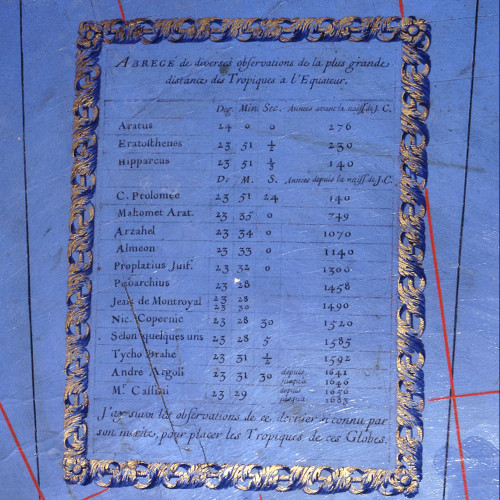 ABREGE de diverses observations de la plus grande
distance des Tropiques a l'Equateur.
Deg. Min. Sec. Années avant la naiss. de J.C.
Aratus 24 0 0 276
Eratosthenes 23 51 ⅓ 230
Hipparcus 23 51 ⅓ 140
De M. S. Années depuis la naiss. de J.C.
C. Ptolomée 23 51 24 140
Mahomet Arat. 23 35 0 749
Arzahel 23 34 0 1070
Almeon 23 33 0 1140
Proplatius Juif. 23 32 0 1300
Purbarchius 23 28 1458
Jean de Montroyal 23 28
23 30 1490
Nic. Copernic 23 28 30 1520
Selon quelques uns 23 28 5 1585
Tycho Brahe 23 31 ½ 1592
André Argoli 23 31 30 depuis 1641
jusqu'a 1646
Mr. Cassini 23 29 depuis 1656
jusqu'a 1683
J'ay suivi les observations de ce dernier si connu par
son merite, pour placer les Tropiques de ces Globes.